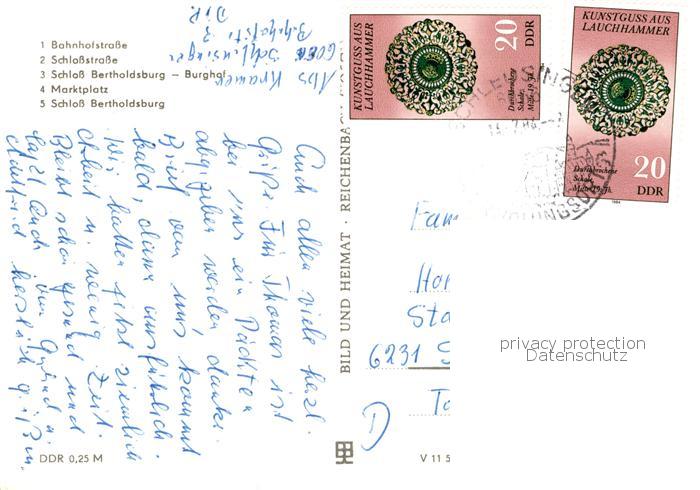 1 Bahnhofstraße
2 Schloßstraße
3 Schloß Bertholdsburg – Burghof
4 Marktplatz
5 Schloß Bertholdsburg
Bahnhofstr. 3
6056 Schleusingen
Euch allen viele herzl.
Grüße. Für Thomas ist
bei uns ein Päckchen
abgegeben worden, danke.
Brief von uns kommt
bald, dann ausführlich.
Wir hatten jetzt ziemlich
Arbeit u. wenig Zeit.
Bleibt schön gesund und
laßt Euch von
herzlich grüßen.
DDR 0,25 M
BILD UND HEIMAT · REICHENBA
V 11 5
KUNSTGUSS AUS
LAUCHHAMMER
20
DDR
Durchbrochene
Schale,
Mitte 19. Jh.
KUNSTGUSS AUS
LAUCHHAMMER
20
DDR
Durchbrochene
Schale,
Mitte 19. Jh.
1984
Fam
Hor
Sta
6231 S
Ta
D
privacy protection
Datenschutz